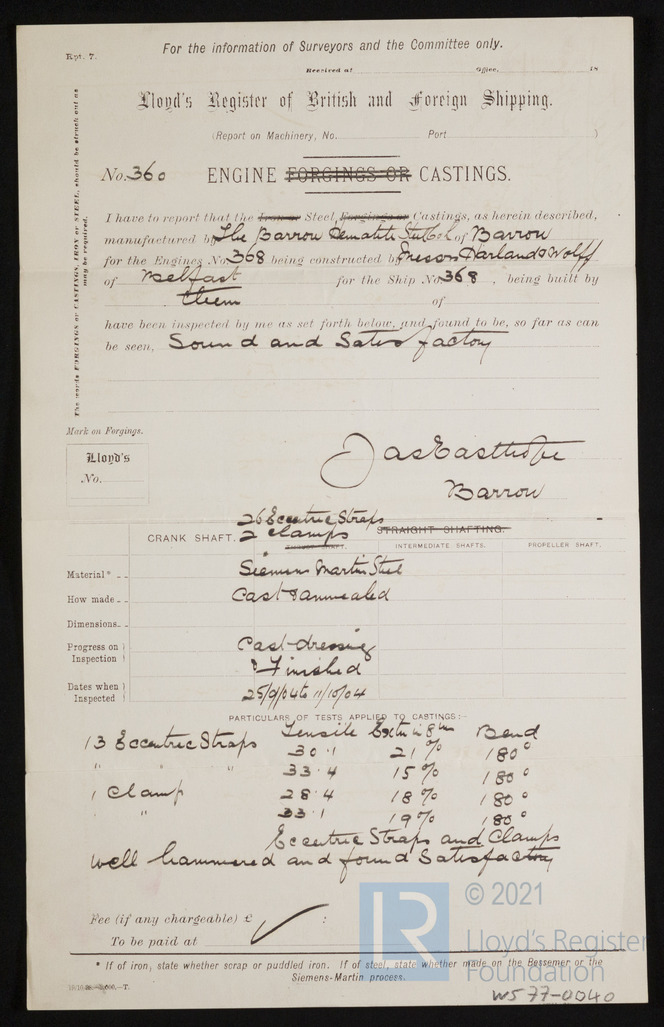 Rpt. 7.
For the information of Surveyors and the Committee only.
Received at Office, 18
Lloyd's Register of British and Foreign Shipping.
(Report on Machinery, No. Port )
No. 360 ENGINE FORGINGS OR CASTINGS.
The words FORGINGS or CASTINGS, IRON or STEEL, should be struck out as may be required.
I have to report that the Iron or Steel, Forgings or Castings, as herein described,
manufactured by The Barrow Hematite Steel Co Ld of Barrow
for the Engines No. 368 being constructed by Messrs Harland & Wolff
of Belfast for the Ship No. 368 , being built by
them of
have been inspected by me as set forth below, and found to be, so far as can
be seen, Sound and Satisfactory
Mark on Forgings.
Lloyd's
No.
Jas Easthope
Barrow
26 Eccentric Straps
CRANK SHAFT. 2 Clamps STRAIGHT SHAFTING.
INTERMEDIATE SHAFTS. PROPELLER SHAFT.
Material* Siemens Martin Steel
How made Cast & annealed
Dimensions
Progress on Inspection Cast dressing
& Finished
Dates when Inspected 25/9/04 to 11/10/04
PARTICULARS OF TESTS APPLIED TO CASTINGS:-
Tensile Extn in 8 ins Bend
13 Eccentric Straps 30.1 21% 180°
" " " 33.4 15% 180°
1 Clamp 28.4 18% 180°
" 33.1 19% 180°
Eccentric Straps and Clamps
well hammered and found Satisfactory
Fee (if any chargeable) £ :
To be paid at
* If of iron, state whether scrap or puddled iron. If of steel, state whether made on the Bessemer or the
Siemens-Martin process.
© 2021
LR
Lloyd's Register
Foundation
WS77-0040